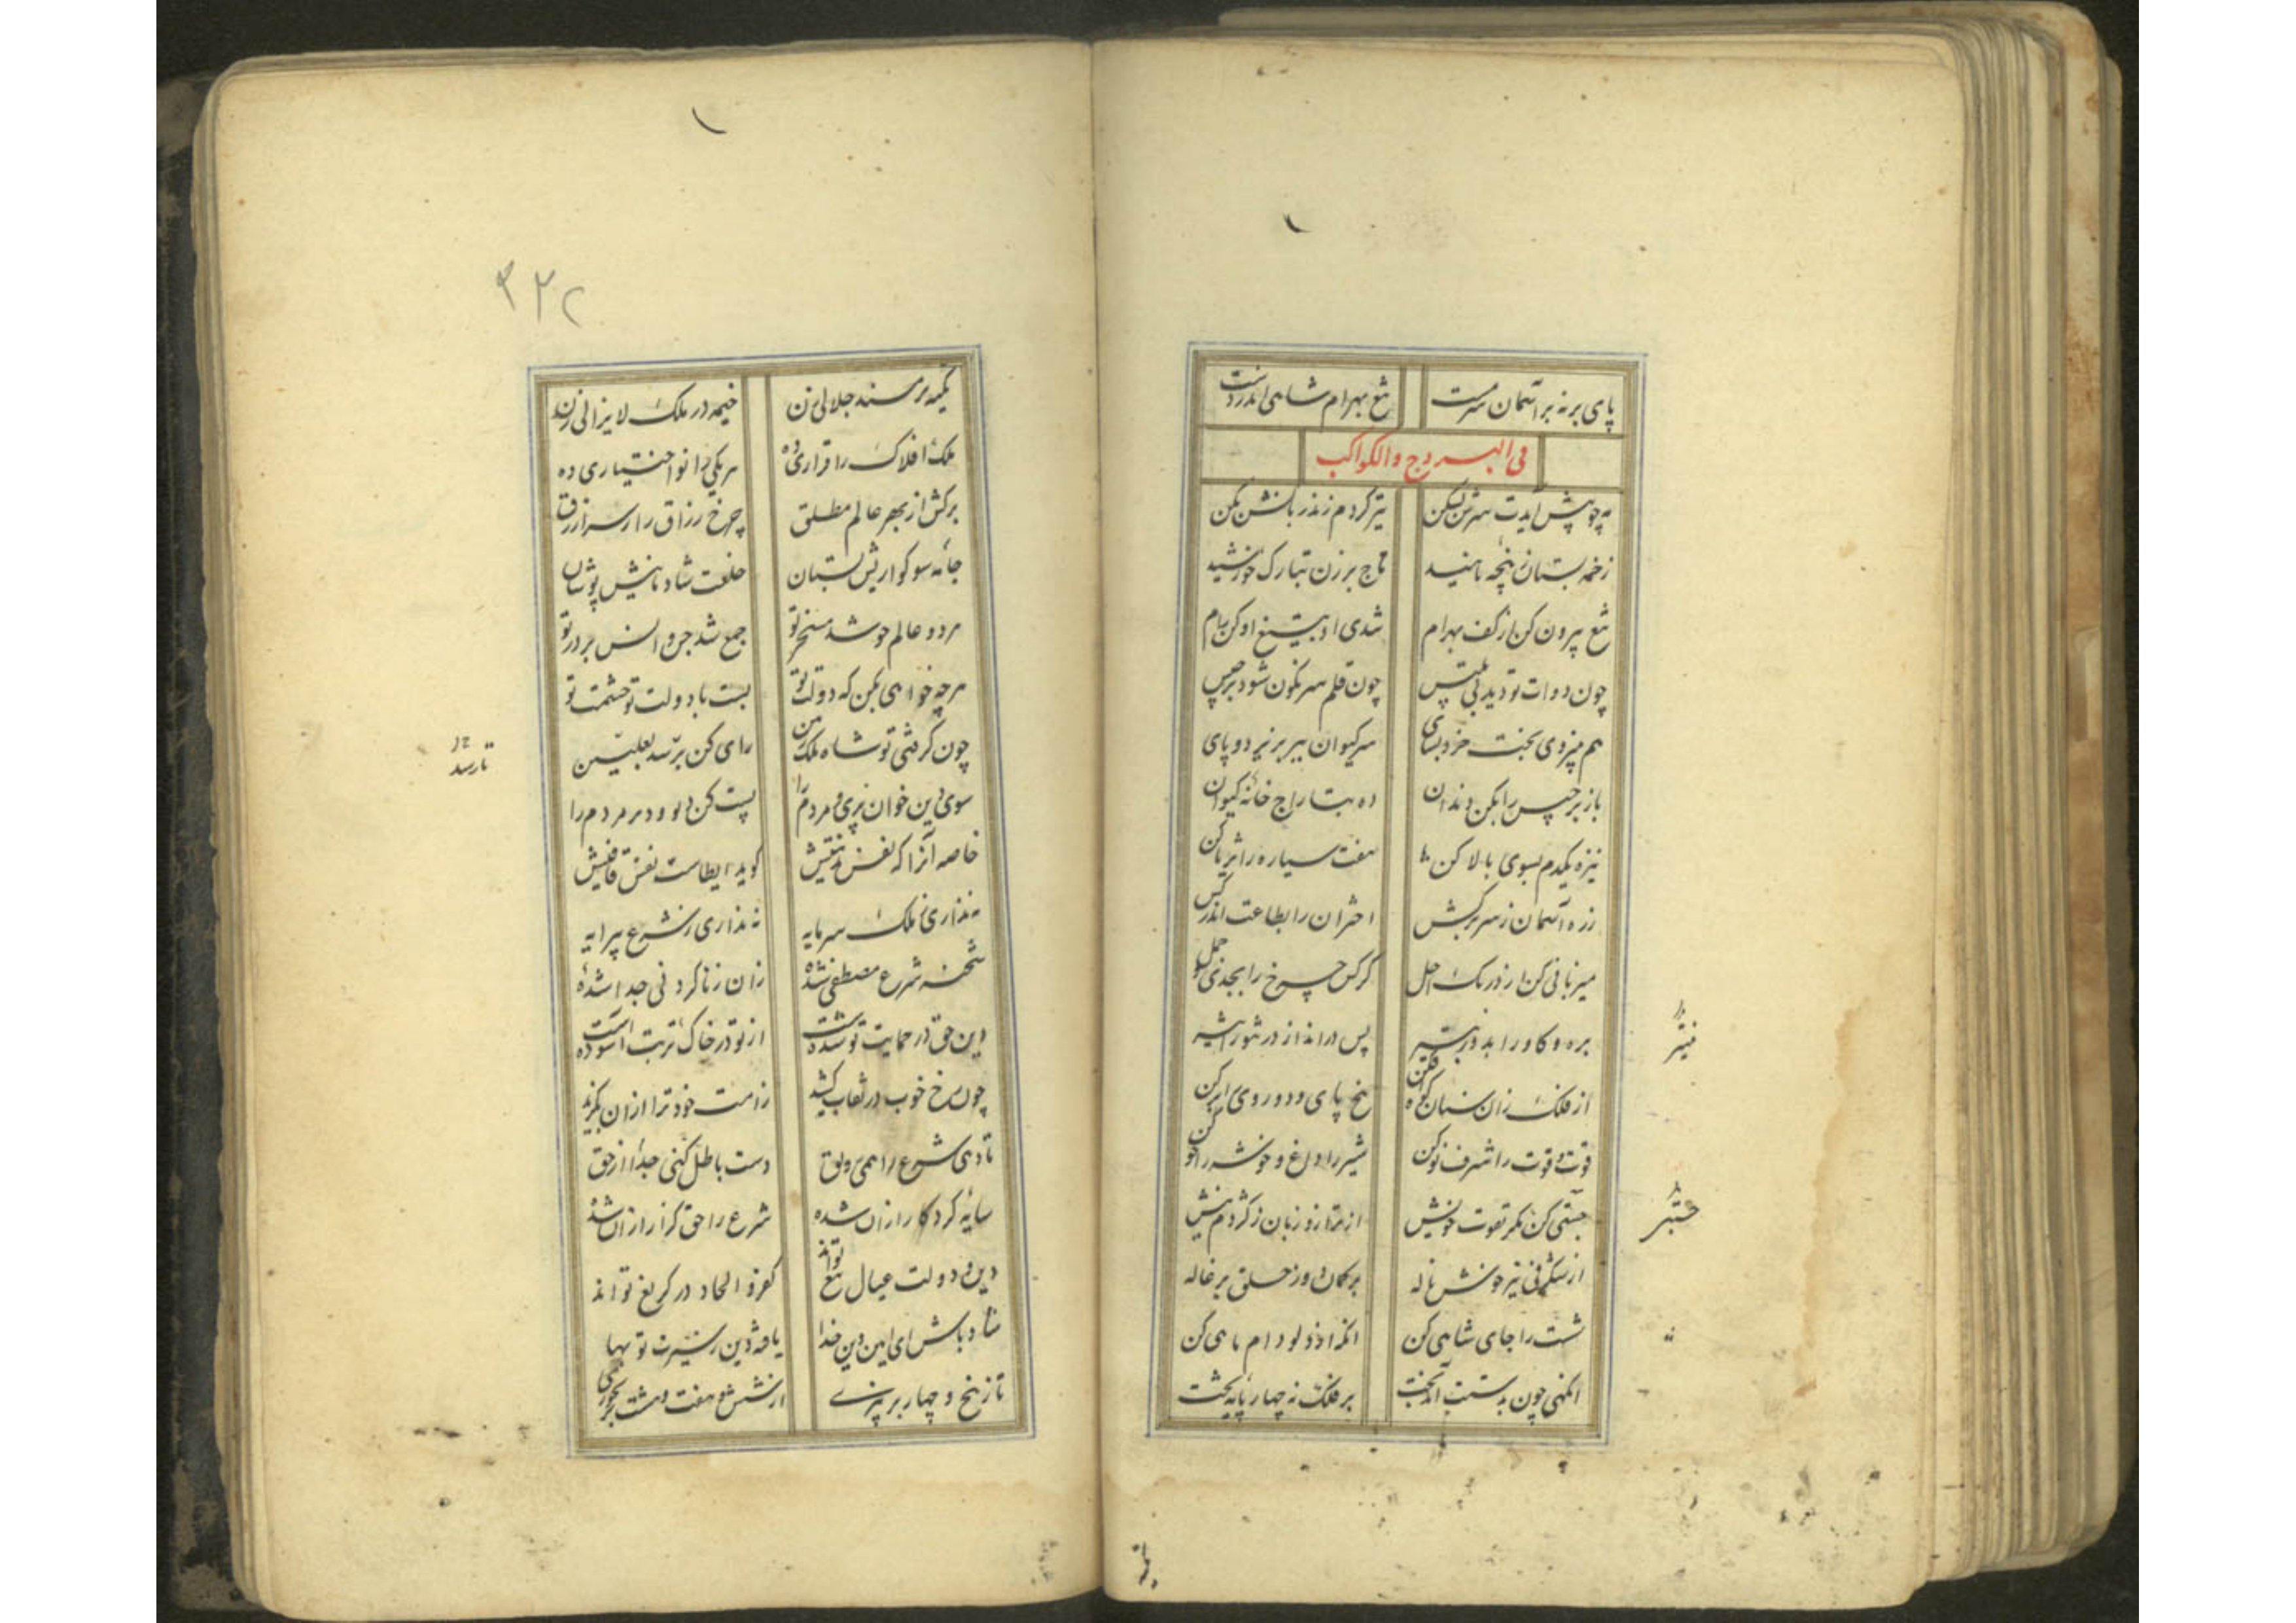 پای برنه بر آسمان سرمست تیغ بهرام شاهی اندر دست
فی البروج والکواکب
مه چو پیش آیدت سرش بشکن تیر گردم زند زبانش بکن
زخمه بستان ز پنجه ناهید تاج برزن بتارک خورشید
تیغ بیرون کن از کف بهرام شدی او بتیغ او کن رام
چون دوات تو دید بی تلبیس چون قلم سرنگون شود برجیس
سر کیوان ببر بزیر دو پای
باز برجیس را بکن دندان ده بتاراج خانه کیوان
نیزه یکدم بسوی بالا کن هفت سیاره را ثریا کن
زره آسمان ز سر برکش اختران را بطاعت اندر کش
میزبانی کن از در یک اجل کرکس چرخ را بجدی و حمل
بره و گاو را بدو بسپر پس درانداز در ثور اشیر
از فلک زان سنان کوه فکن
قوت و قوت را شرف نو کن شیر را داغ و خوشه را خو کن
چستی کن مگر بقوت خویش از ترازو زبان ز کژدم نیش
از شگرفی نیز خونش ناله بر کمان دوز حلق بزغاله
شست را جای شاهی کن انگه از دلو دام ماهی کن
انگهی چون بدستت آمد تخت بر فلک نه چهار پایه تخت
تکیه بر مسند جلالی زن خیمه در ملک لایزالی زن
ملک افلاک را قراری ده هر یکی را تو اختیاری ده
برکش از بهر عالم مطلق چرخ رزاق را سر ازرق
جامه سوکواریش بستان خلعت شادمانیش پوشان
هر دو عالم چو شد مسخر تو جمع شد جن و انس بر در تو
هر چه خواهی بکن که دولت تو بست با دولت تو حشمت تو
چون گرفتی تو شاه ملک رای کن بر سد بعلیین
تا رسد
سوی دین خوان پری و مردم را پست کن دیو و در مردم را
خاصه آنرا که نفس
نگذاری ز ملک سرمایه نگذاری ز شرع پیرایه
شحنه شرع مصطفی شده زان زنا کردنی جدا شده
دین حق در حمایت تو شدست از تو در خاک تربت آسودست
چون رخ خوب در نقاب کشید ز امت خود ترا از آن بگزید
تا دهی شرع را همی رونق دست باطل کنی جدا از حق
سایه کردگار از آن شده شرع را حق گزار از آن شده
دین و دولت عیال تیغ تواند کفر و الحاد در گریغ تواند
شاد باش ای امین دین خدا یافته دین ز سیرت تو بها
تا ز پنج و چهار بر از شش و هفت و هشت
۳۲۲